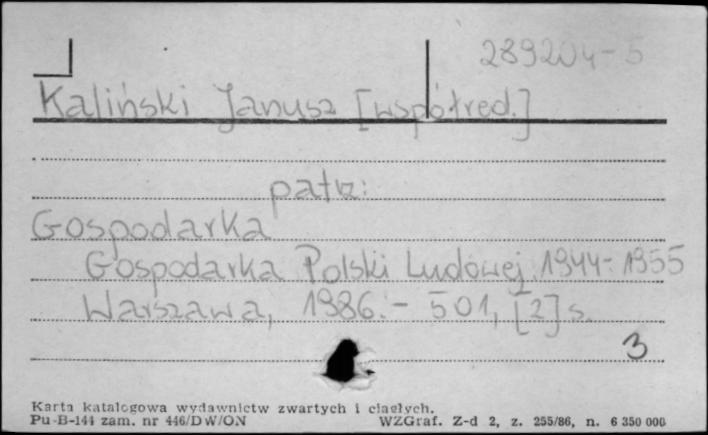 289204-5
Kaliński Janusz [współred.]
patrz:
Gospodarka
Gospodarka Polski Ludowej 1944-1955
Warszawa, 1986. - 501, [2] s.
3
Karta katalogowa wydawnictw zwartych i ciągłych.
Pu-B-144 zam. nr 446/DW/ON WZGraf. Z-d 2, z. 255/86, n. 6 350 000